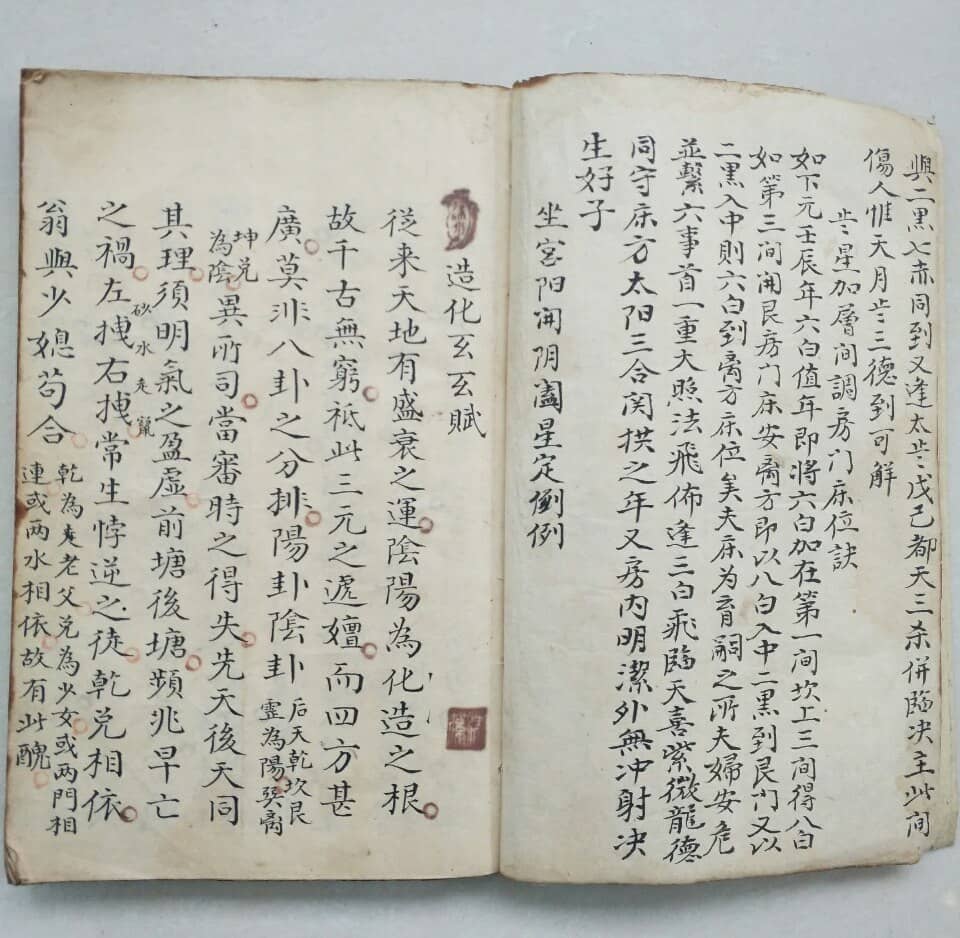 與二黑七赤同到又逢太岁戊己都天三杀併臨决主此间
傷人惟天月岁三德到可解
岁星加層间調房门床位訣
如下元壬辰年六白值年即將六白加在第一间坎上三间得八白
如第三间開艮房门床安离方即以八白入中二黑到艮门又以
二黑入中則六白到离方床位矣夫床为育嗣之所夫婦安危
並繫六事首一重大照法飛佈逢三白飛臨天喜紫微龍德
同守床方太阳三合関拱之年又房内明潔外無冲射决
生好子
坐宮阳開阴闔星定例例
造化玄玄賦
從来天地有盛衰之運陰陽為化造之根
故千古無窮祗此三元之遞嬗而四方甚
廣莫非八卦之分排陽卦陰卦
后天乾坎艮
靈為陽巽离
坤兑
為陰
異所司當審時之得失先天後天同
其理須明氣之盈虚前塘後塘蘋兆早亡
之禍左拽右拽常生悖逆之徒乾兑相依
砂水
翁與少媳苟合
乾為老父兑為少女或两門相
連或两水相依故有此醜